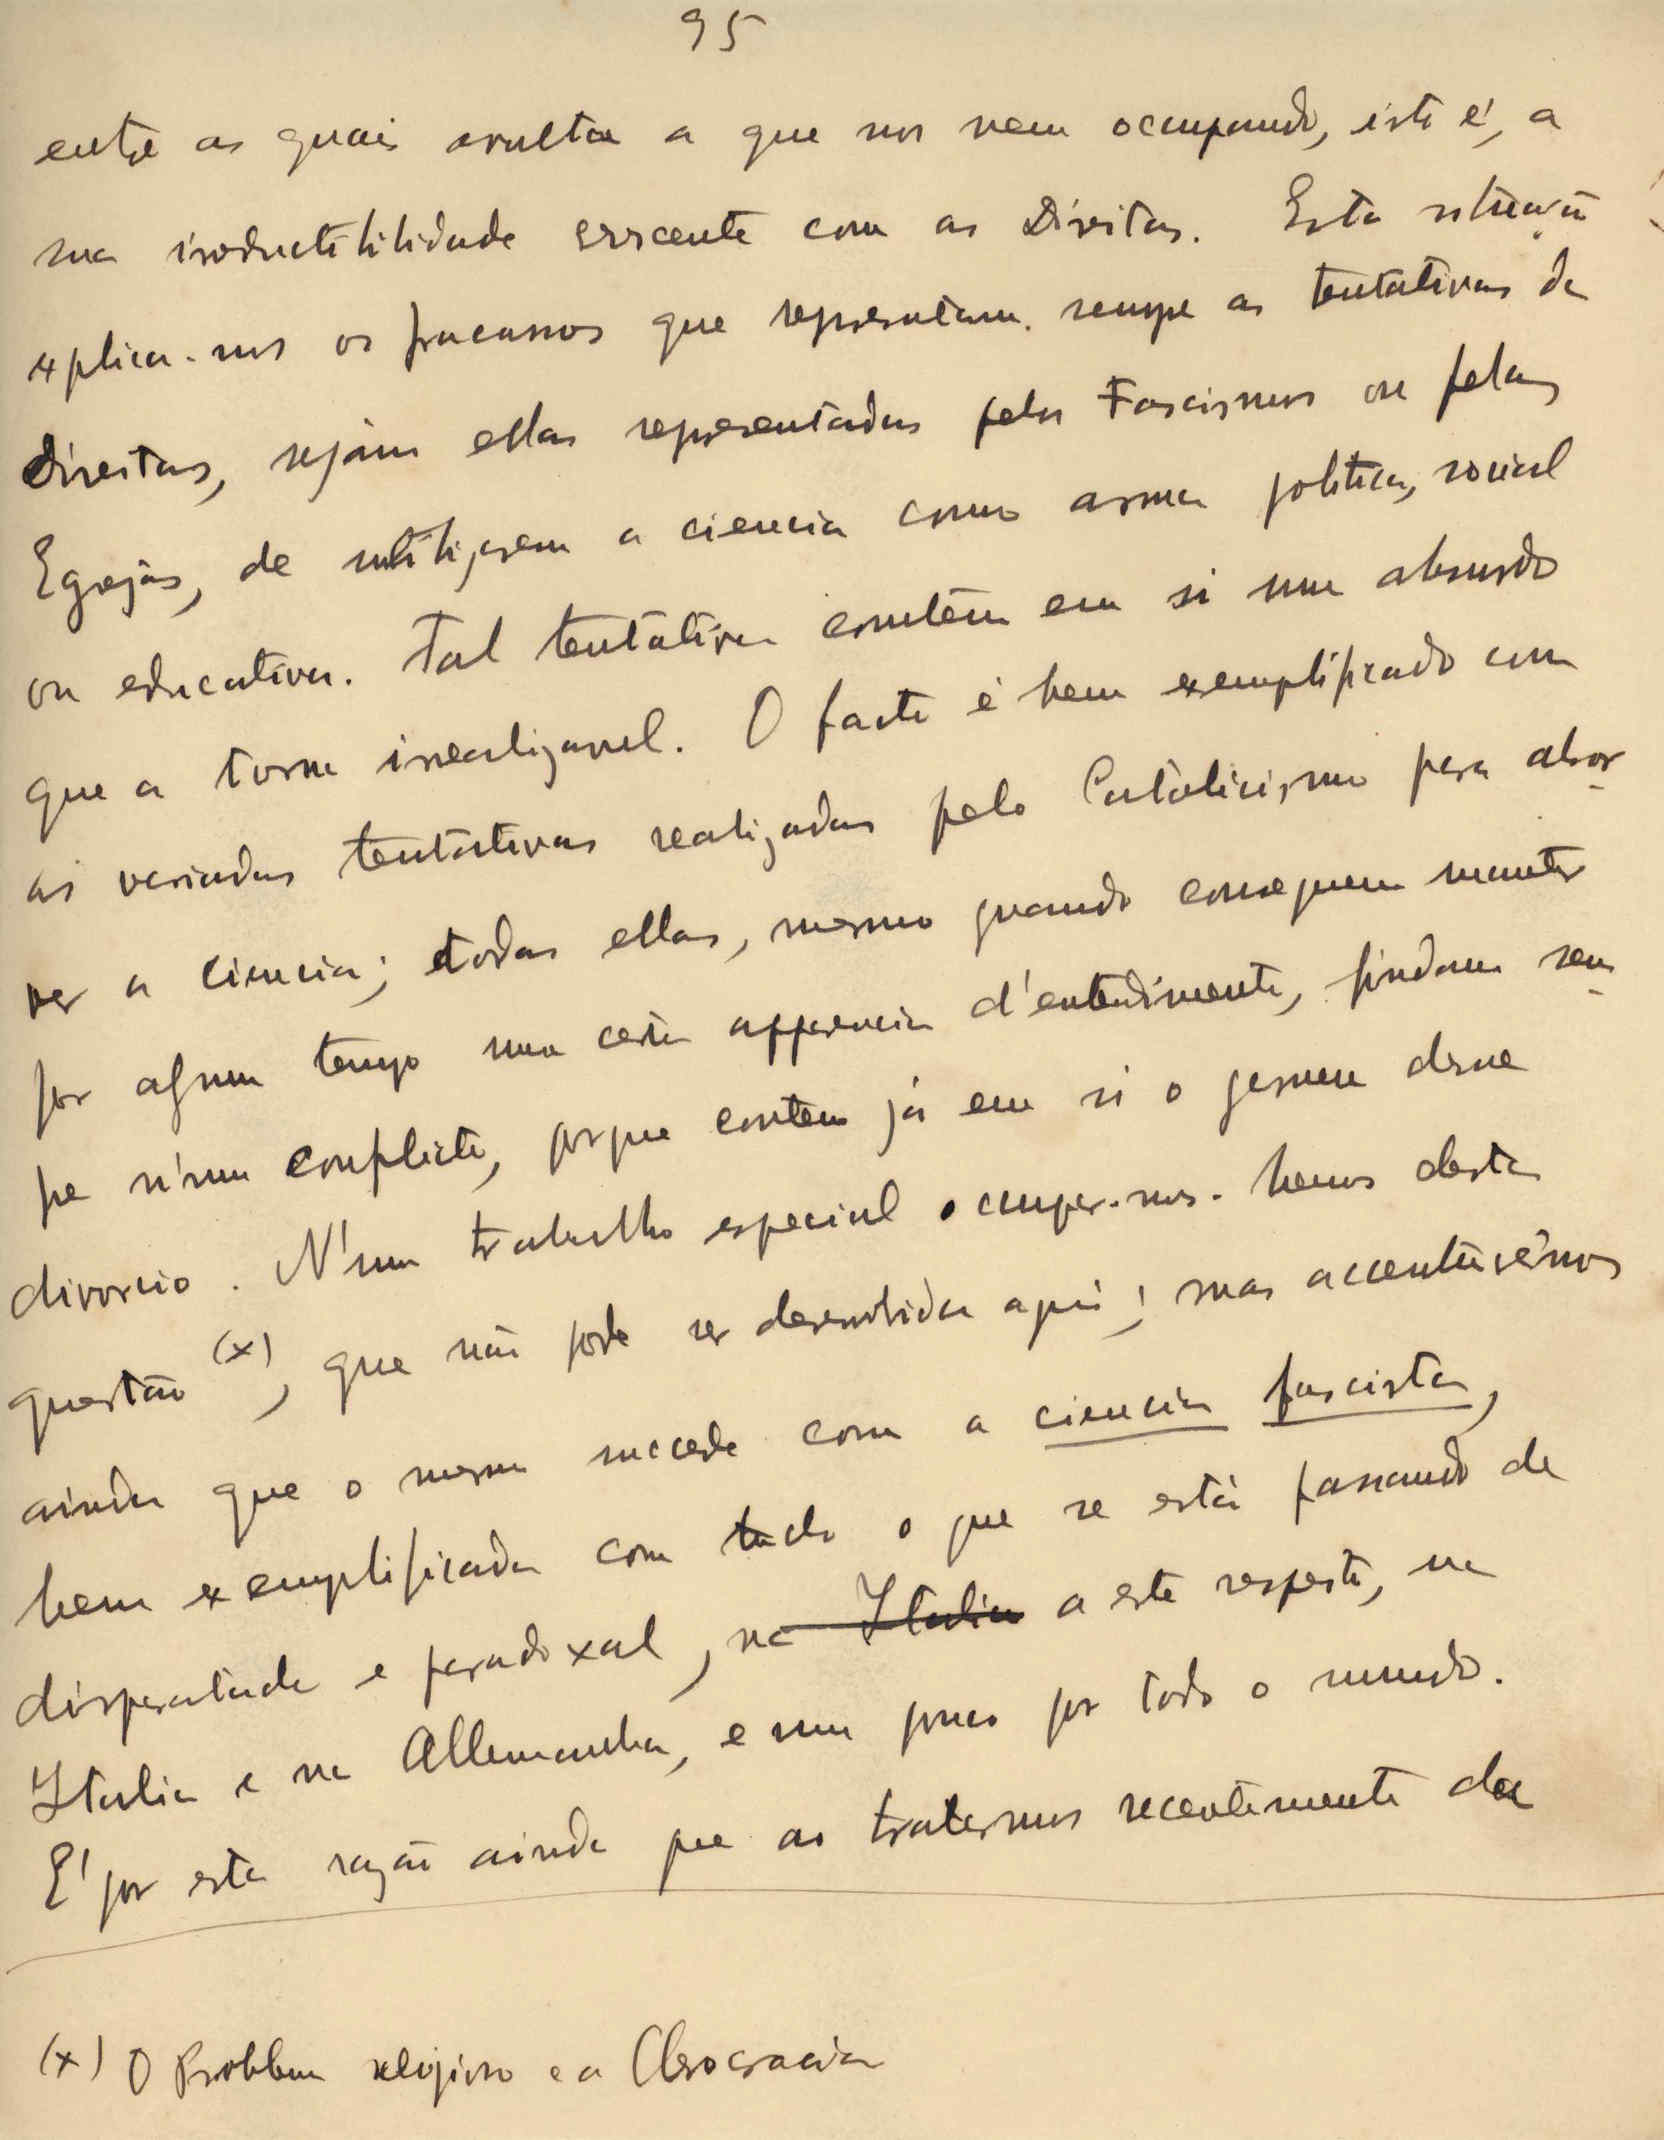 95
entre as quais avulta a que nos vem occupando, isto é, a
sua irreductibilidade essecente com as Direitas. Esta situação
explica-nos os fracassos que representam sempe as tentativas da
Direitas, sejam ellas representadas pelos Fascismos ou pelas
Egrejas, de utilizarem a ciencia como arma politica, social
ou educativa. Tal tentativa contêm em si um absurdo
que a torna irrealizavel. O facto é bem exemplificado com
as variadas tentativas realizadas pelo Catolicismo para absor
ver a ciencia; todas ellas, mesmo quando conseguem manter
por algum tempo uma certa apparencia d'entendimento, findam sem
pre n'um conflicto, porque contem já em si o germen desse
divorcio. N'um trabalho especial occupar-nos-hemos desta
questão (x), que não pode ser desenvolvida aqui; mas accentuêmos
ainda que o mesmo succede com a ciencia fascista,
bem exemplificada com tudo o que se está passando de
disparatado e paradoxal, na Italia a este respeito, na
Italia e na Allemanha, e um pouco por todo o mundo.
E' por esta razão ainda que ao tratarmos recentemente da
(x) O Problema religioso e a